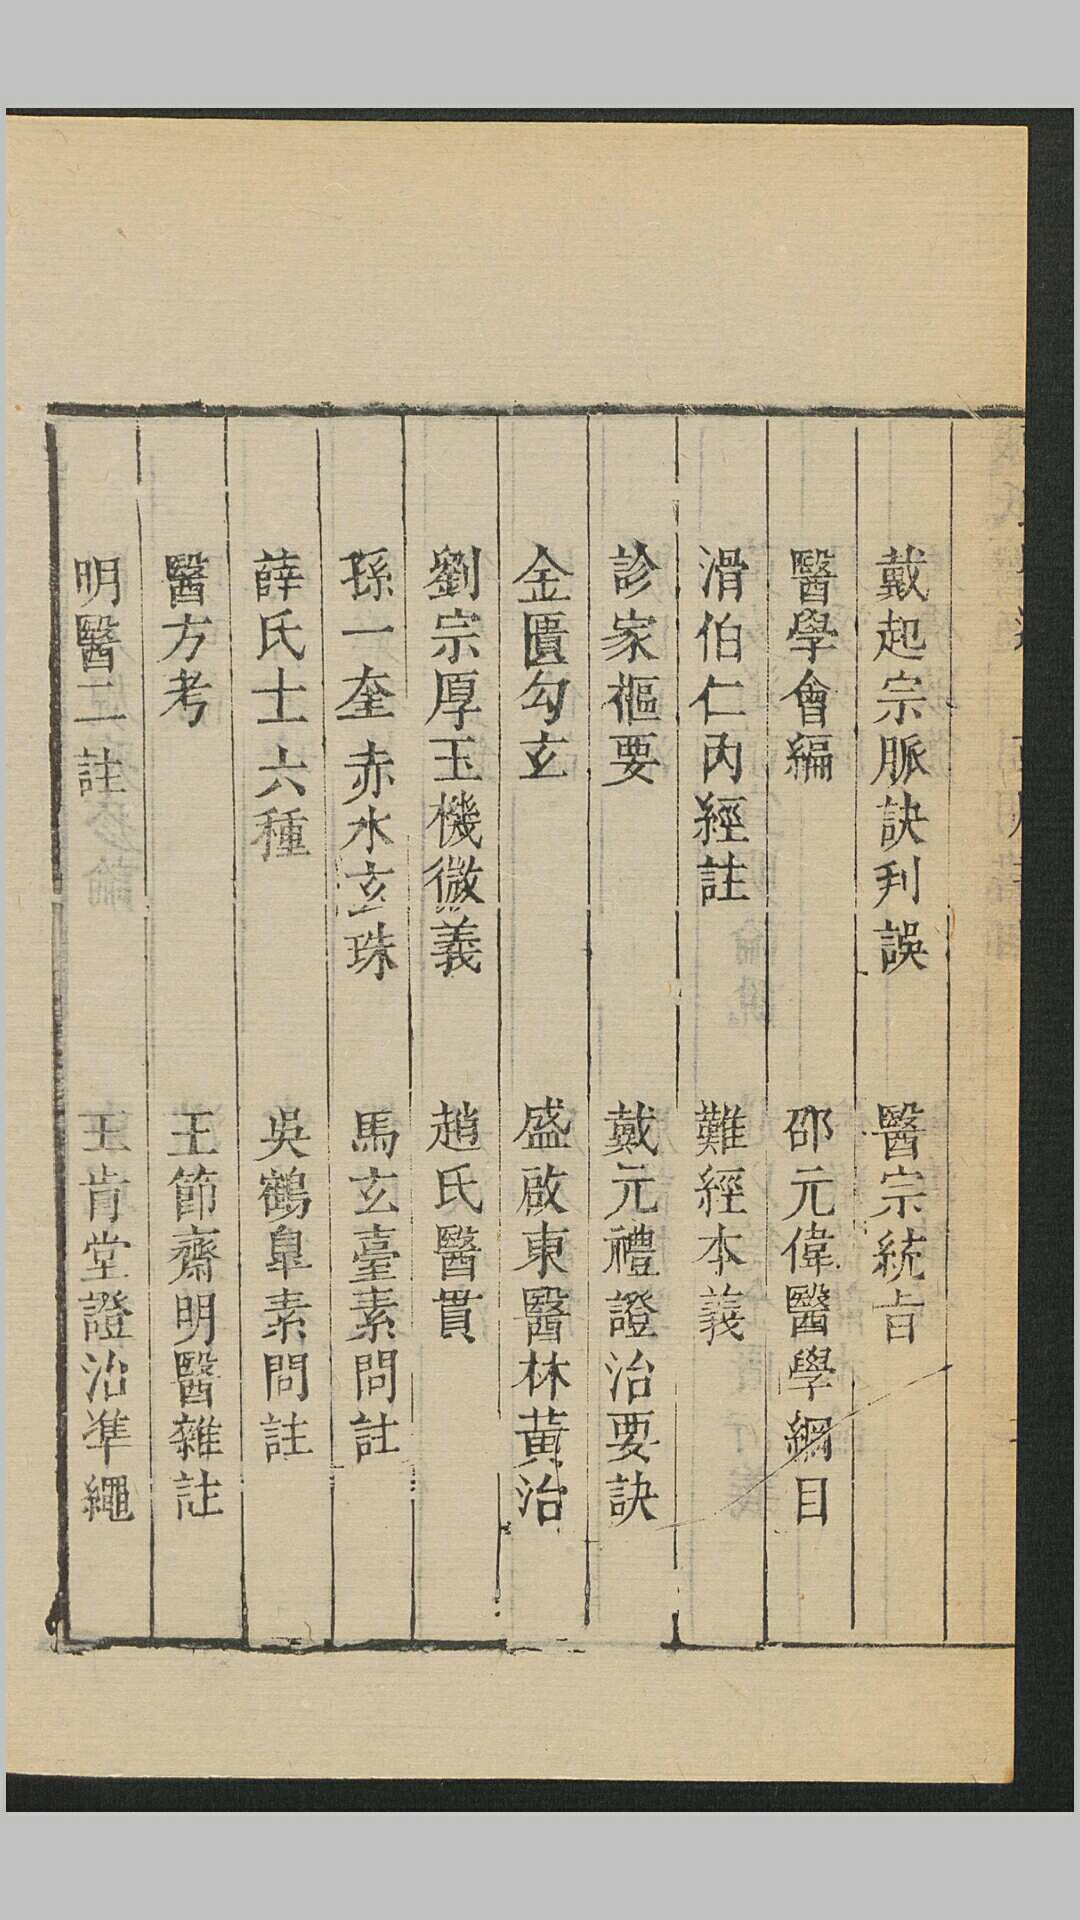 戴起宗脈訣刋誤　醫宗統㫖
醫學會編　邵元偉醫學綱目
滑伯仁内經註　難經本義
診家樞要　戴元禮證治要訣
金匱勾玄　盛啟東醫林黃治
劉宗厚玉機微義　趙氏醫貫
孫一奎赤水玄珠　馬玄臺素問註
薛氏十六種　吳鶴臯素問註
醫方考　王節齋明醫雜註
明醫二註　王肯堂證治準繩